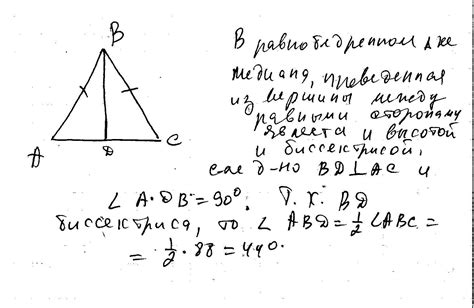 B
A
D
C
В равнобедренном ∆ке
медиана, проведенная
из вершины между
равными сторонами
является и высотой
и биссектрисой,
след-но BD⊥AC и
∠ A·DB=90°. Т.К. BD
биссектриса, то ∠ ABD=1/2∠ABC=
=1/2·88=440.